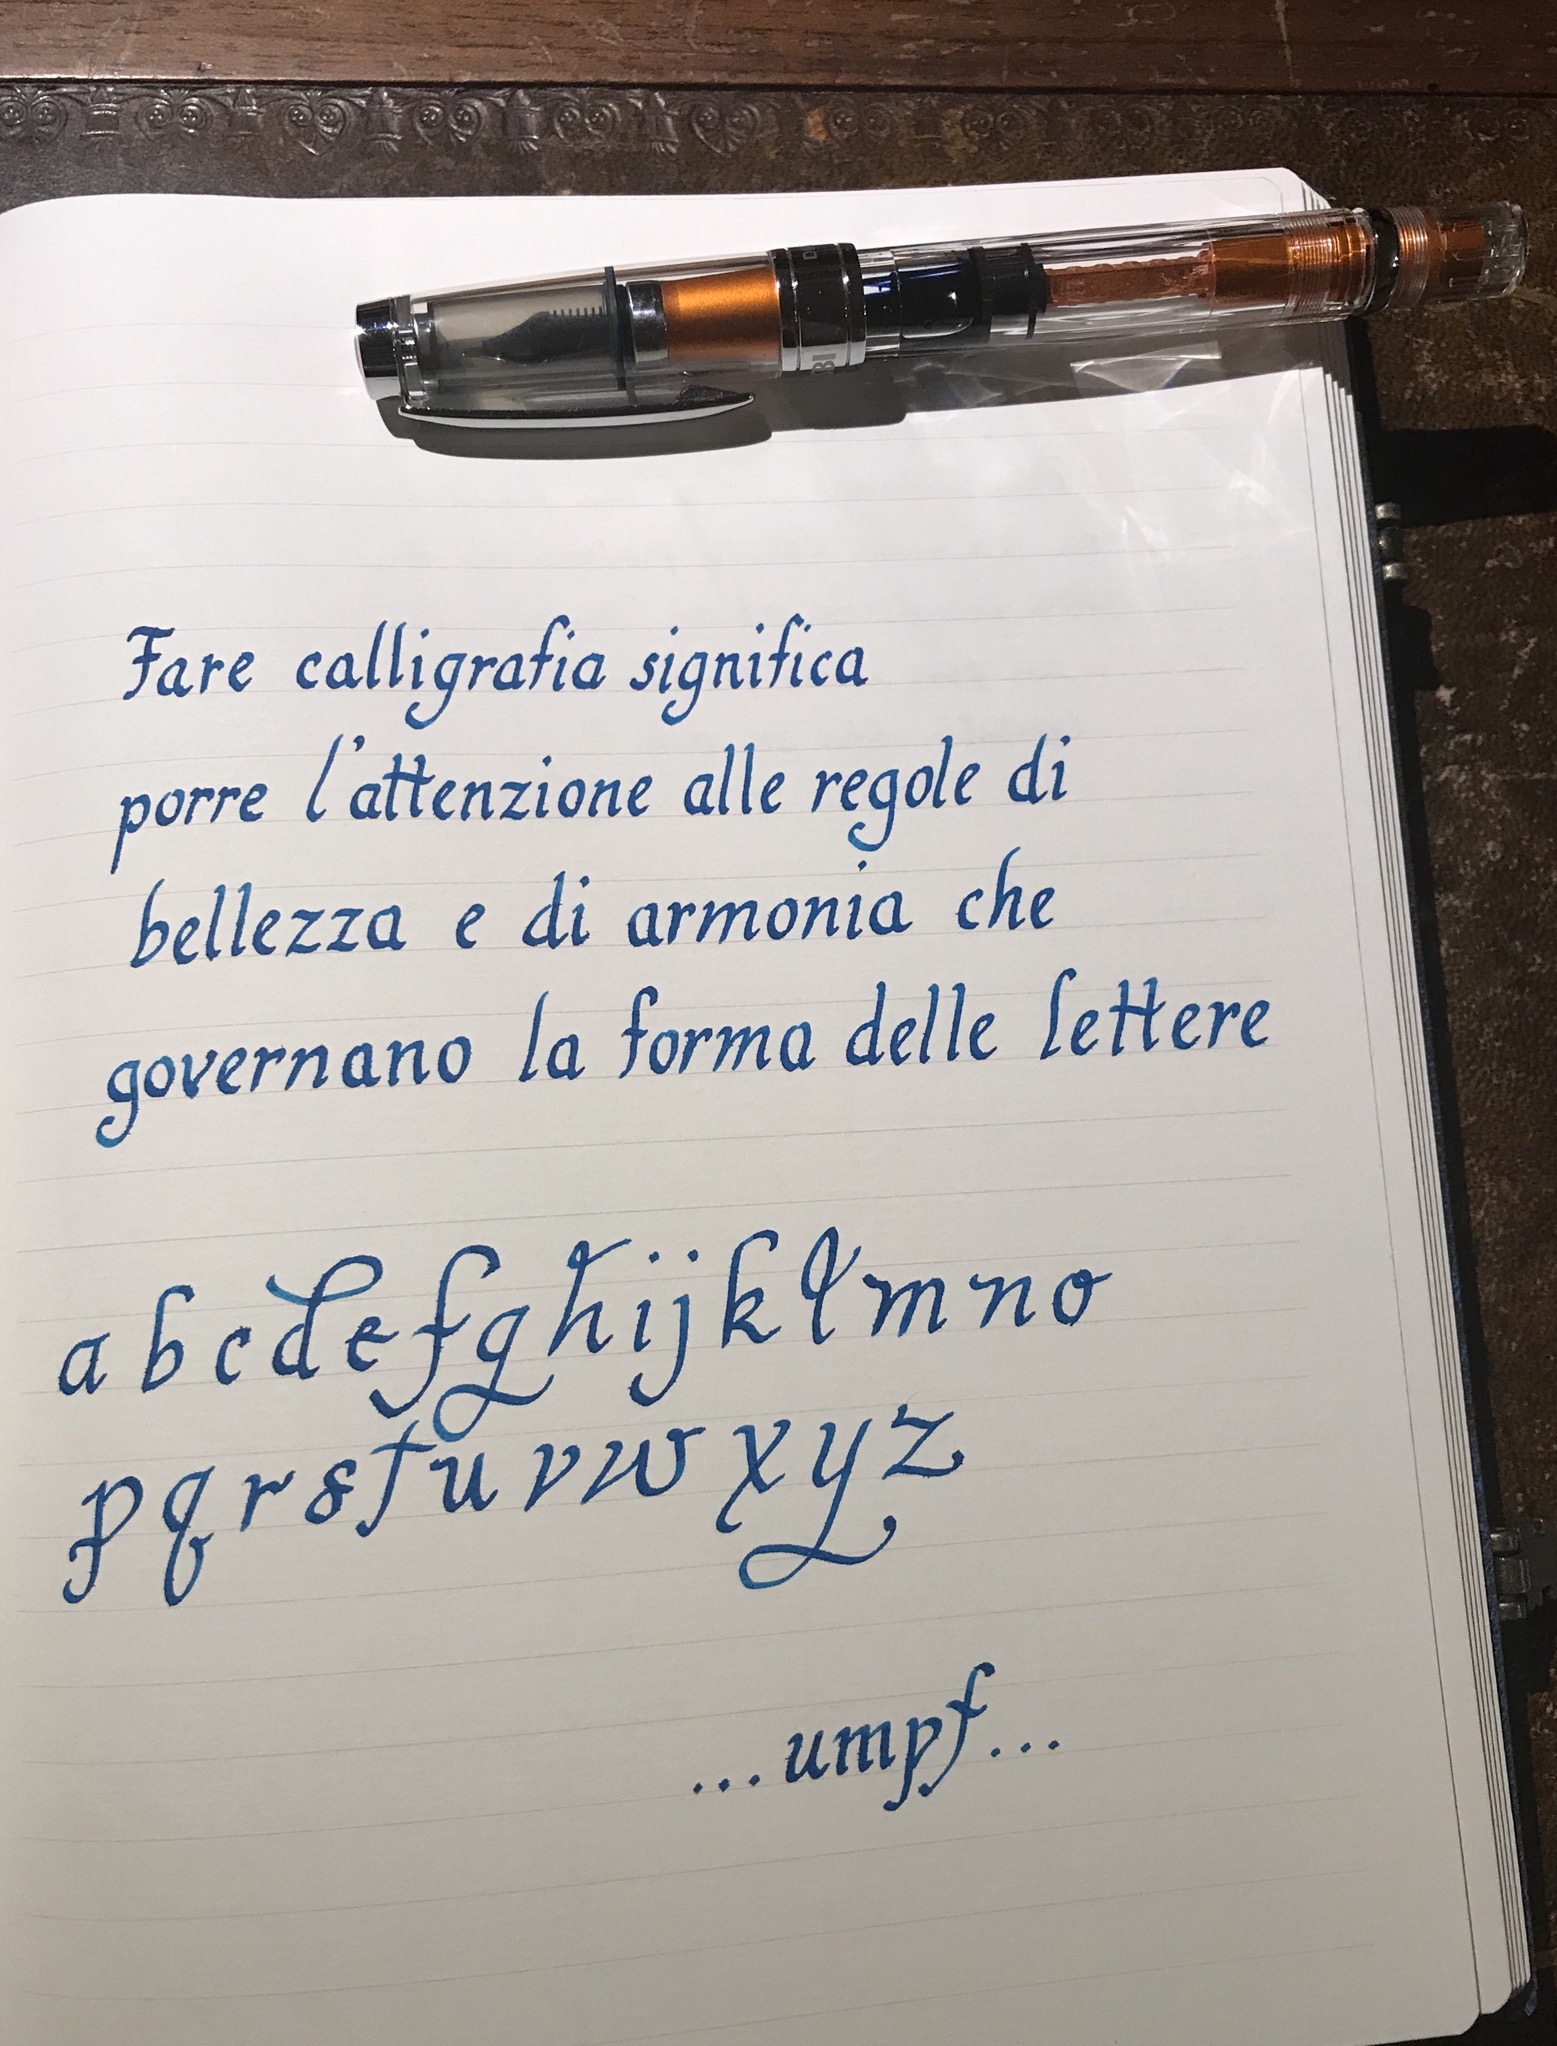 Fare calligrafia significa
porre l'attenzione alle regole di
bellezza e di armonia che
governano la forma delle lettere
a b c d e f g h i j k l m n o
p q r s t u v w x y z
...umpf...